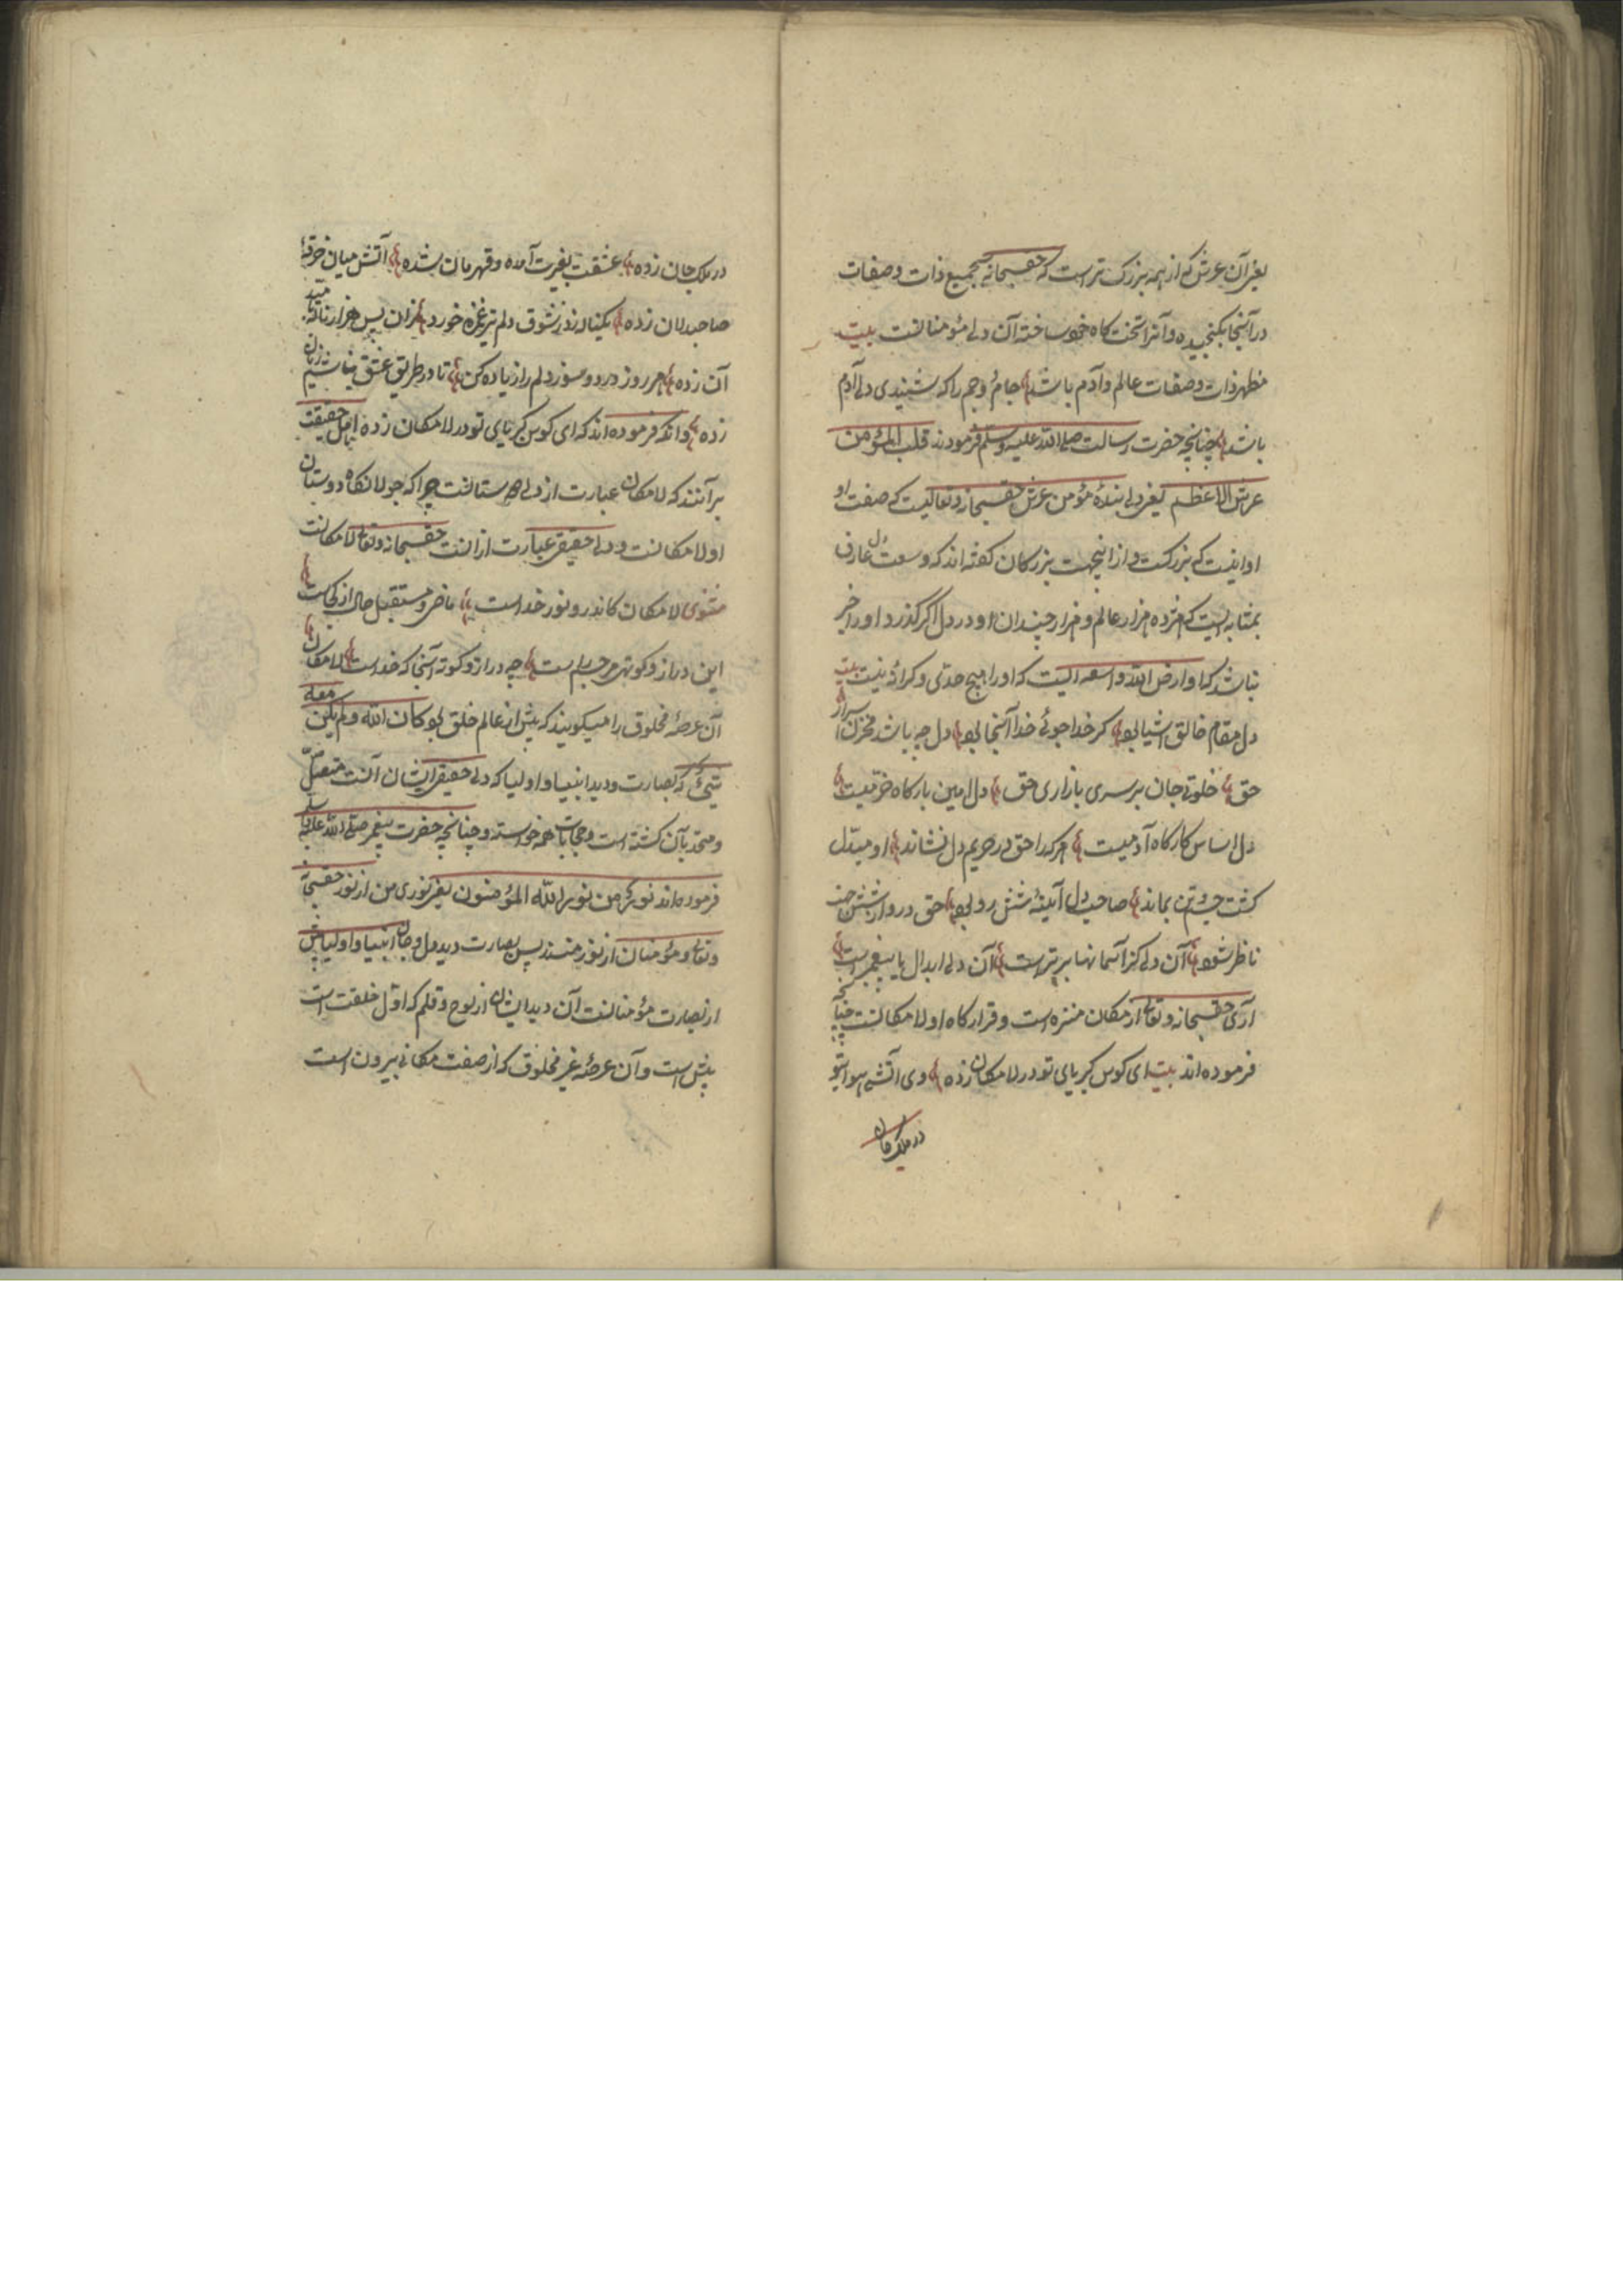 یعنی آن عرش که از همه بزرگ تر است که حقسبحانه بجمیع ذات و صفات
در آنجا بگنجیده و آنرا تخت کاه خود ساخته آن دل مؤمنانست بیت
مظهر ذات و صفات عالم و آدم باشد جام جم را که شنیدی دل آدم
باشد چنانچه حضرت رسالت صلی الله علیه وسلم فرمودند قلب المؤمن
عرش الله الاعظم یعنی دل بندهٔ مؤمن عرش حقسبحانه و تعالیست که صفت او
او اینست که بزرکست و از اینجهت بزرکان کفته اند که وسعت دل عارف
بمثابه ایست که هژده هزار عالم و هزار چندان او در دل اگر کذرد او را خبر
نباشد که او ارض الله واسعه الیست که او را هیچ حدی و کرانه نیست بیت
دل مقام خالق اشیا بود کر خدا جوئی خدا آنجا بود دل چه باشد مخزن اسرار
حق خلوت جان بر سری بازاری حق دل امین بارکاه محرمیست
دل اساس کارکاه آدمیست هر کرا حق در حریم دل نشاند او مبدل
کشت جسم تن بماند صاحب دل آینهٔ شش رو بود حق درو از شش جهت
ناظر شود آن دل کز آسمانها برتر است آن دل ابدال یا پیغمبر است
آری حقسبحانه و تعالی از مکان منزه است و قرارکاه او لامکانست چنانچه
فرموده اند بیت ای کوس کبریای تو در لامکان زده وی آتش هوای تو
در ملک جان
در ملک جان زده عشقت بغیرت آمده و قهرمان شده آتش میان خرقهٔ
صاحبدلان زده یکباره ز شوق دلم تیر غمزه خورد زان پس هزار ناله
آن زده هر روز درد و سوز دلم را زیاده کن تا در طریق عشق نباشیم
زده و آنکه فرموده اند که ای کوس کبریای تو در لامکان زده اهل حقیقت
بر آنند که لامکان عبارت از دل دوستانست چرا که جولانکاه دوستان
او لامکانست و دل حقیقی عبارت از آنست حقسبحانه و تعالی لامکانست
مثنوی لامکان کاندرو نور خداست ماضی و مستقبل و حال از کجاست
این دراز و کوتهی مر جسم راست چه دراز و کوته آنجا که خداست لامکان
آن عرصهٔ مخلوق را میکویند که پیش از عالم خلق بود کان الله ولم یکن معه
شیئ که بصارت و دید انبیا و اولیا که دل حقیقی ایشان آنست متصل
و متحد بآن کشته است و حجابات همه خواسته و چنانچه حضرت پیغمبر صلی الله علیه وسلم
فرموده اند نوری من نور الله المؤمنون یعنی نوری من از نور حقسبحانه
وتعالی و مؤمنان از نور منند پس بصارت دید دل و جان انبیا و اولیا پیش
از بصارت مؤمنانست آن دید ایشان از لوح و قلم که اول خلقت است
پیش است و آن عرصهٔ غیر مخلوق که از صفت مکانی بیرون است